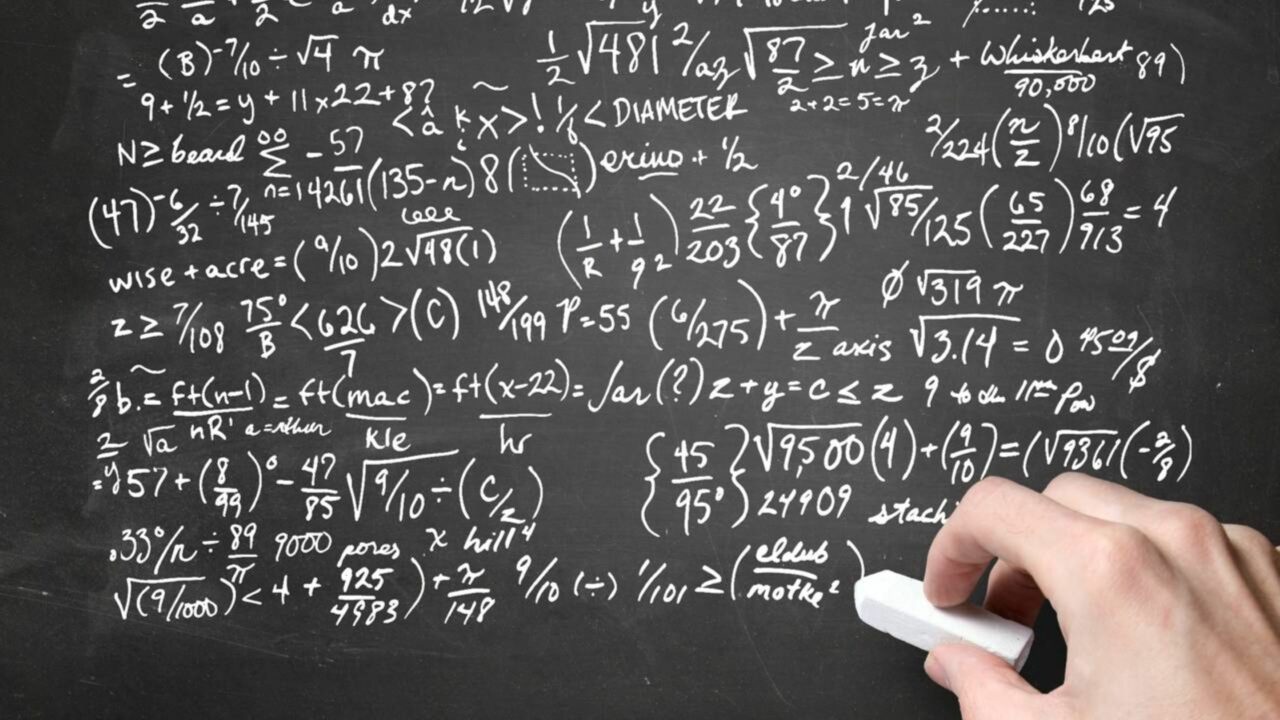 (B)^-7/10 ÷ √4 π
1/2 √481 2/az √87/2 ≥ n ≥ z + Whiskerbert/90,000 89)
jar²
= 9 + 1/2 = y + 11 x 22 + 8?
2+2=5=π
<â k x>! 1/8 < DIAMETER
N ≥ beard ∞ ∑ n=1 -57/4261(135-n) 8 ( ) erino + 1/2
2/224 (n/z) 8/10 (√95
(47)^-6/32 ÷ 7/145
wise + acre = (9/10) 2√48(1)
(1/R + 1/9 2) 22/203 {4°/87} 2/46 1 √85/125 (65/227) 68/913 = 4
z ≥ 7/108 75°/B <626/7> (C) 148/199 P=55 (6/275) + π/z axis
Ø √319 π
√3.14 = 0 4509/$
2/8 b. = ft(n-1)/nR' = ft(mac)/kle = ft(x-22)/hr = ∫ar(?) z + y = c ≤ z 9 to the 11ᵗʰ Pow
2 √a
= y57 + (8/99)° - 47/85 √9/10 ÷ (c/z)
{45/95°} √9,500 (4) + (9/10) = (√9361 (-2/8)
24909 stach
.33°/n ÷ 89/π 9000 pores x hill⁴
√(9/1000) < 4 + 925/4983) + π/148 9/10 (÷) 1/101 ≥ (eldub/motke²)